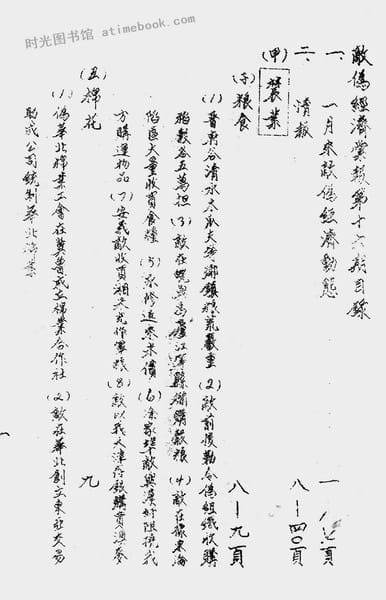 时光图书馆 atimebook.com
敵偽經濟彙報第十六期目錄
一、一月來敵偽經濟動態 一—七頁
二、情報 八—四〇頁
(甲) 農業
(子) 糧食 八—九頁
(1) 晉東谷清水太原夫等鄉鎮糧荒嚴重 (2) 敵前後勒令偽組織收購
稻穀谷五萬担 (3) 敵在皖與高蘆江等縣儲購穀糧 (4) 敵在蘇東淪
陷區大量收買食糧 (5) 敵修造寒米價 (6) 涂家埠敵與漢奸阻撓我
方購運物品 (7) 安義敵收買湘米充作軍糧 (8) 敵以我天津存銀購買澳麥
(丑) 棉花 九
(1) 偽華北棉業工會在冀魯成立棉業合作社 (2) 敵在華北創立東亞交易
助成公司統制華北海業
一